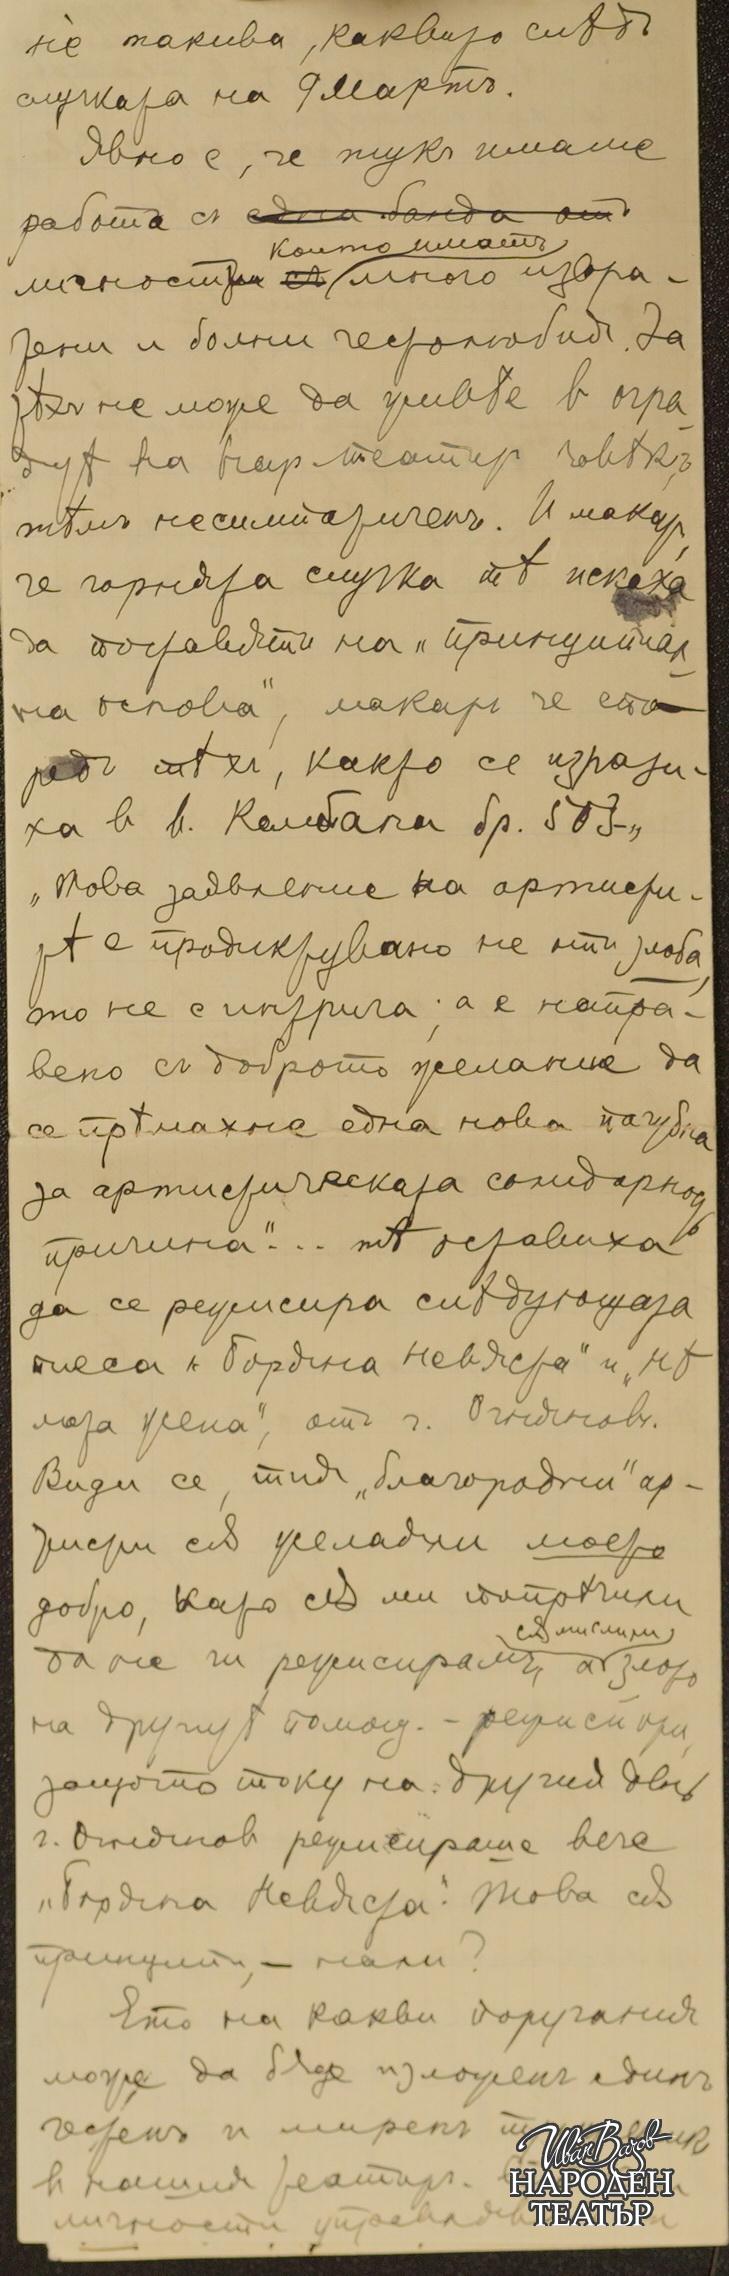 не такива, каквито слѣдъ
случката на 9 Мартъ.
Явно е, че тукъ имаме
работа съ една банда отъ
които иматъ
личности съ много изра-
зени и болни честолюбия. За
тѣхъ не може да живѣе в огра-
дитѣ на нар. театър човѣкъ,
тѣмъ несимпатиченъ. И макар,
че горнята случка тѣ искаха
да поставятъ на "принципиал-
на основа", макаръ че спо-
редъ тѣхъ, както се изрази-
ха в в. Камбана бр. 503 "
"Това заявление на артисти-
тѣ е продиктувано не отъ злоба,
то не е интрига; а е напра-
вено съ доброто желание да
се прѣмахне една нова пагубна
за артистическата солидарность
причина"... тѣ оставиха
да се режисира слѣдующата
пиеса "Горѣща Невѣста" и "Не
моја жена", отъ г. Огняновъ.
Види се, тия "благородни" ар-
тисти сѫ желали моето
добро, като сѫ ми попрѣчили
сѫ мислили
да не ги режисирамъ, а злото
на другитѣ помощ.-режисьори,
защото току на другия день
г. Огнянов режисираше вече
"Горѣща Невѣста". Това сѫ
принципи, – нали?
Ето на какви поругания
може да бѫде изложенъ единъ
честенъ и миренъ
в нашия театъръ.
личности
Иван Вазов
НАРОДЕН
ТЕАТЪР